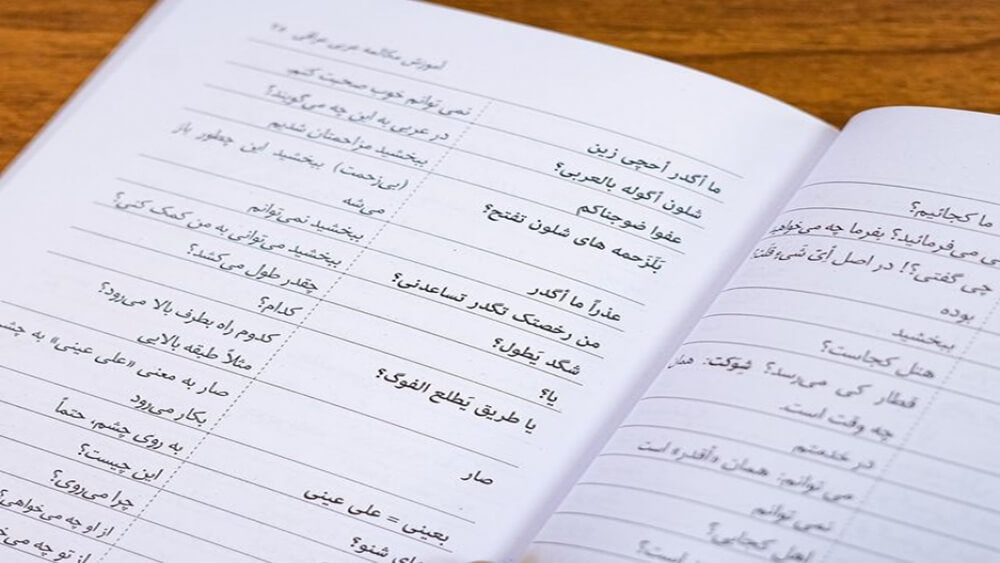 آموزش مکالمه عربی عراقی ۲۸
ما أگدر أحچی زین
نمی توانم خوب صحبت کنم.
شلون أگوله بالعربی؟
در عربی به این چه می‌گویند؟
عفوا ضوجناکم
ببخشید مزاحمتان شدیم
بَلزَحمه های شلون تفتح؟
(بی‌زحمت) ببخشید این چطور باز
می‌شه
عذراً ما أگدر
ببخشید نمی‌توانم
من رخصتک تگدر تساعدنی؟
ببخشید می‌توانی به من کمک کنی؟
شگد یَطول؟
چقدر طول می‌کشد؟
یا؟
کدام؟
یا طریق یَطلع الفوگ؟
کدوم راه بطرف بالا می‌رود؟
مثلاً طبقه بالایی
صار
صار به معنی «علی عینی» به چشم
بکار می‌رود
بعینی = علی عینی
به روی چشم، حتماً
شنو؟
این چیست؟
چرا می‌روی؟
از او چه می‌خواهی؟
از تو چه
ما کجائیم؟
می‌فرمائید؟ بفرما چه
چی گفتی؟! در اصل أیّ شَیء
بوده
ببخشید
هتل کجاست؟
قطار کی می‌رسد؟ شوکت: همان
چه وقت است.
در خدمتم
می توانم: همان «أقدر» است
نمی توانم
اهل کجایی؟